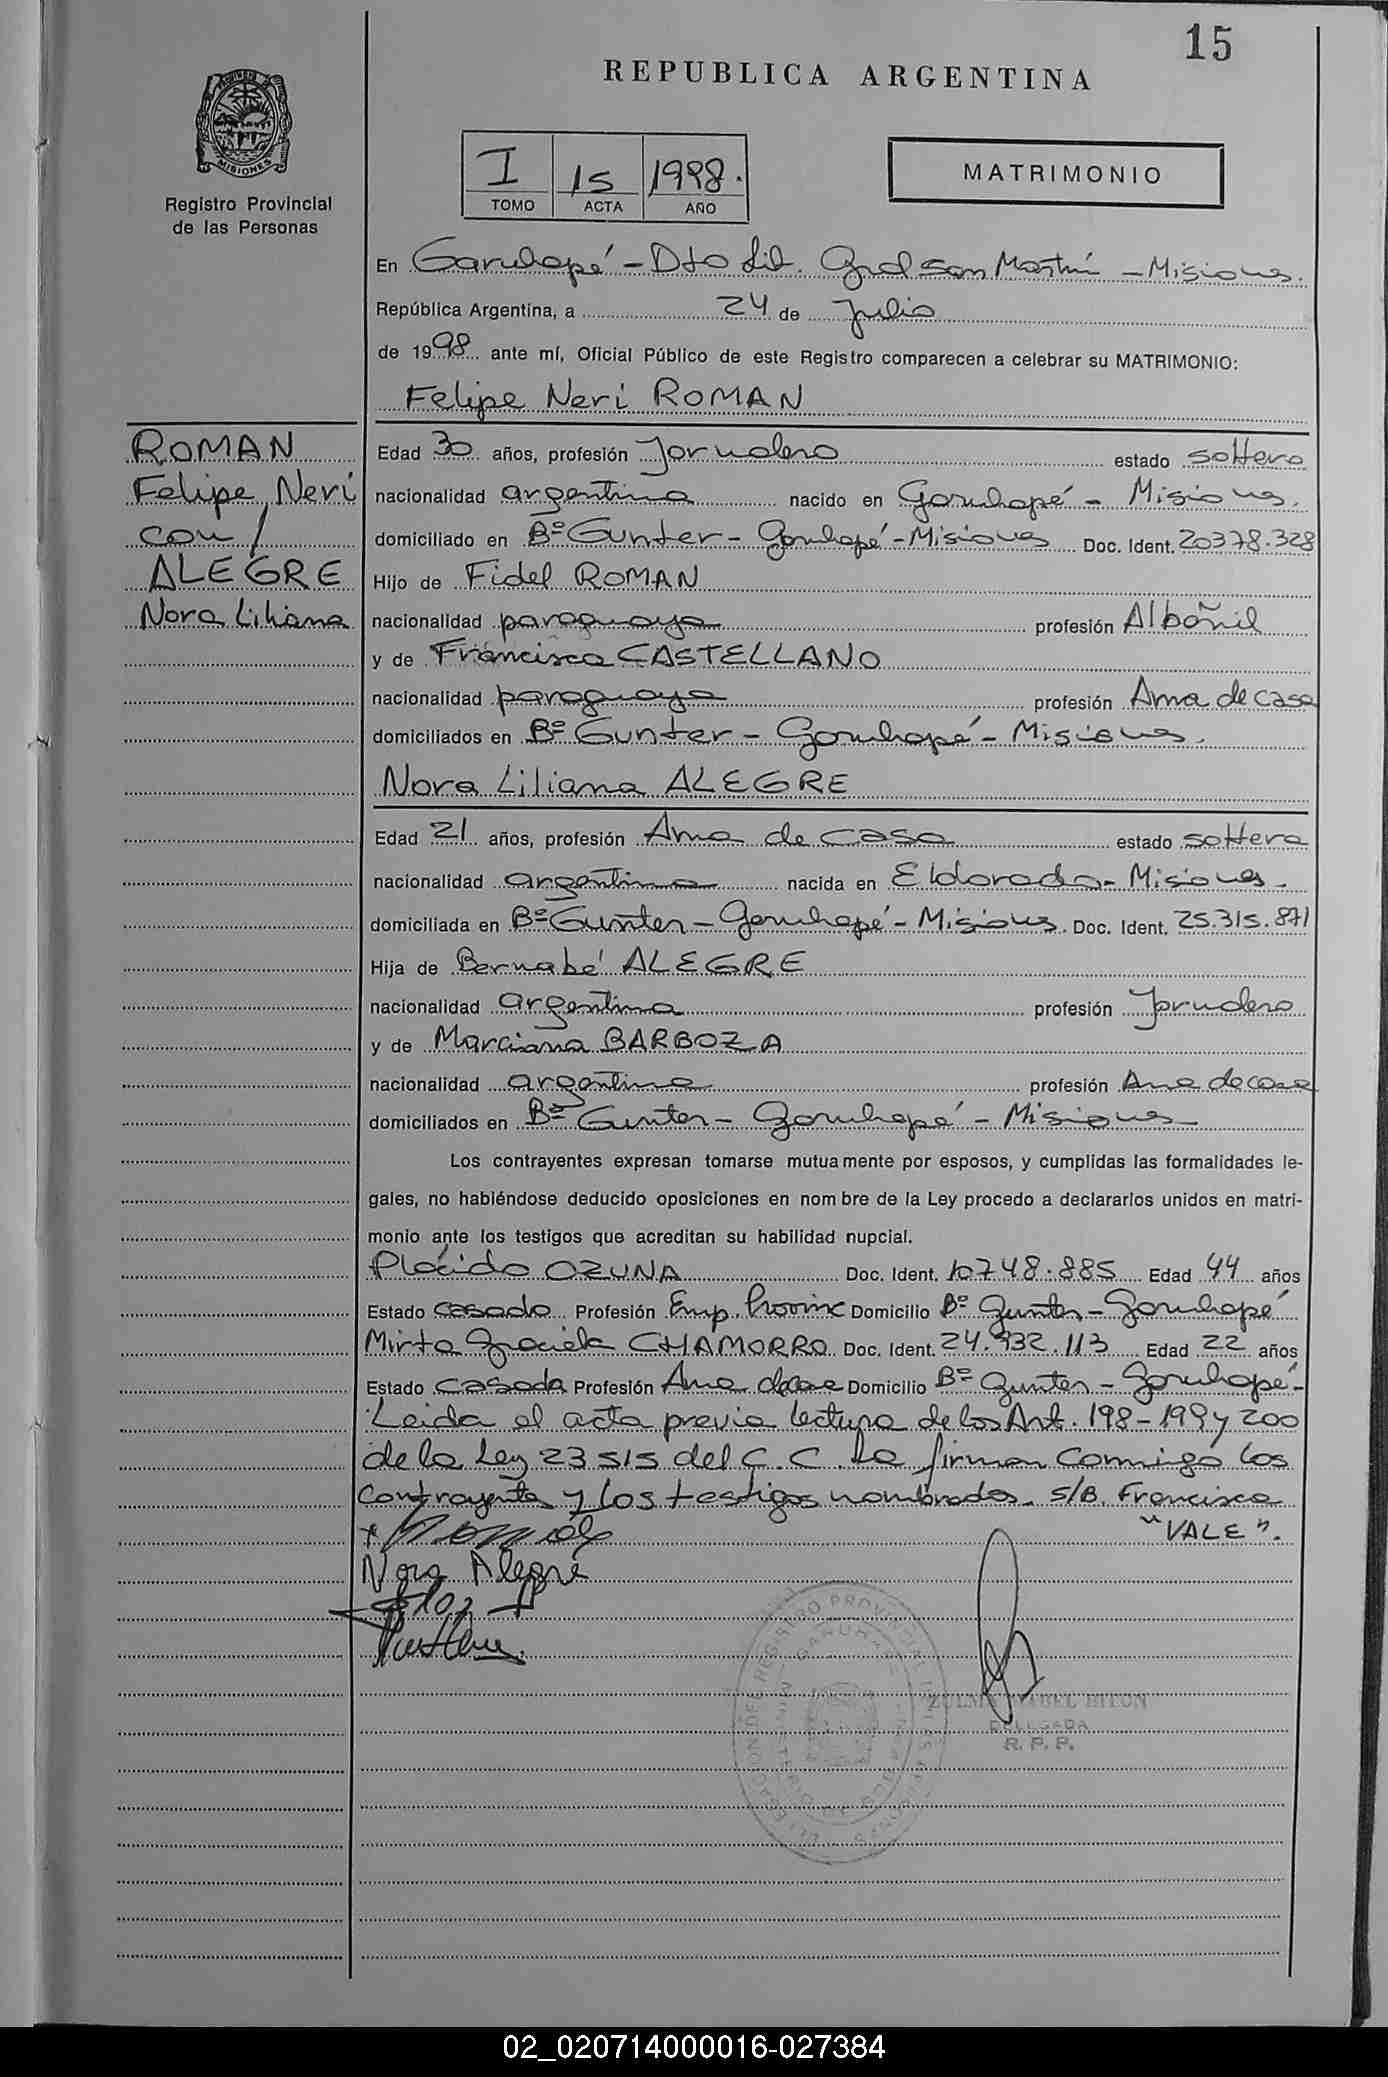 15
REPUBLICA ARGENTINA
MISIONES
Registro Provincial
de las Personas
I 15 1998.
TOMO ACTA AÑO
MATRIMONIO
En Garuhapé - Dto Lib. Gral San Martín - Misiones.
República Argentina, a 24 de Julio
de 1998 ante mí, Oficial Público de este Registro comparecen a celebrar su MATRIMONIO:
Felipe Neri ROMAN
ROMAN
Felipe Neri
con /
ALEGRE
Nora Liliana
Edad 30 años, profesión Jornalero estado soltero
nacionalidad argentina nacido en Garuhapé - Misiones.
domiciliado en Bº Gunter - Garuhapé - Misiones Doc. Ident. 20378.328
Hijo de Fidel ROMAN
nacionalidad paraguaya profesión Albañil
y de Francisca CASTELLANO
nacionalidad paraguaya profesión Ama de casa
domiciliados en Bº Gunter - Garuhapé - Misiones.
Nora Liliana ALEGRE
Edad 21 años, profesión Ama de casa estado soltera
nacionalidad argentina nacida en Eldorado - Misiones.
domiciliada en Bº Gunter - Garuhapé - Misiones. Doc. Ident. 25.315.871
Hija de Bernabé ALEGRE
nacionalidad argentina profesión Jornalero
y de Marciana BARBOZA
nacionalidad argentina profesión Ama de casa
domiciliados en Bº Gunter - Garuhapé - Misiones
Los contrayentes expresan tomarse mutuamente por esposos, y cumplidas las formalidades le-
gales, no habiéndose deducido oposiciones en nombre de la Ley procedo a declararlos unidos en matri-
monio ante los testigos que acreditan su habilidad nupcial.
Plácido OZUNA Doc. Ident. 10748.885 Edad 44 años
Estado casado Profesión Emp. Provinc Domicilio Bº Gunter - Garuhapé
Mirta Graciela CHAMORRO Doc. Ident. 24.932.113 Edad 22 años
Estado casada Profesión Ama de casa Domicilio Bº Gunter - Garuhapé -
Leida el acta previa lectura de los Art. 198-199 y 200
de la Ley 23515 del C.C. La firman conmigo los
contrayentes y los testigos nombrados. S/B. Francisca
"VALE".
Nora Alegre
ZULMA ISABEL BITON
DELEGADA
R. P. P.
02_020714000016-027384